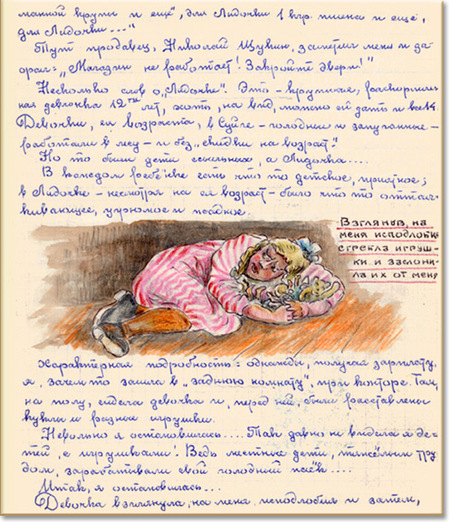 манной крупы и ещё, для Лидочки 1 кгр. пшена и ещё,
для Лидочки...."
Тут продавец, Николай Щукин, заметил меня и за-
орал: „Магазин не работает! Закройте двери!"
Несколько слов о „Лидочке". Это – крупная, раскормлен-
ная девчонка 12ти лет, хотя, на вид, можно ей дать и все 14.
Девочки, ея возраста, в Суйге – голодные и запуганные –
работали в лесу – и без „скидки на возраст."
Но то были дети ссыльных, а Лидочка....
В каждом ребёнке есть что то детское, приятное;
в Лидочке – несмотря на ея возраст – было что то оттал-
кивающее, угрюмое и жадное.
Взглянув, на
меня исподлобья
сгребла игруш-
ки и заслони-
ла их от меня
Характерная подробность: однажды, получая зарплату,
я, зачем то зашла в „заднюю комнату", при конторе. Там,
на полу, сидела девочка и, перед ней, были расставлены
куклы и разные игрушки.
Невольно я остановилась.... Так давно не видела я де-
тей, с игрушками! Ведь местные дети, тяжёлым тру-
дом, зарабатывали свой голодный паёк....
Итак, я остановилась...
Девочка взглянула, на меня, исподлобья и затем,